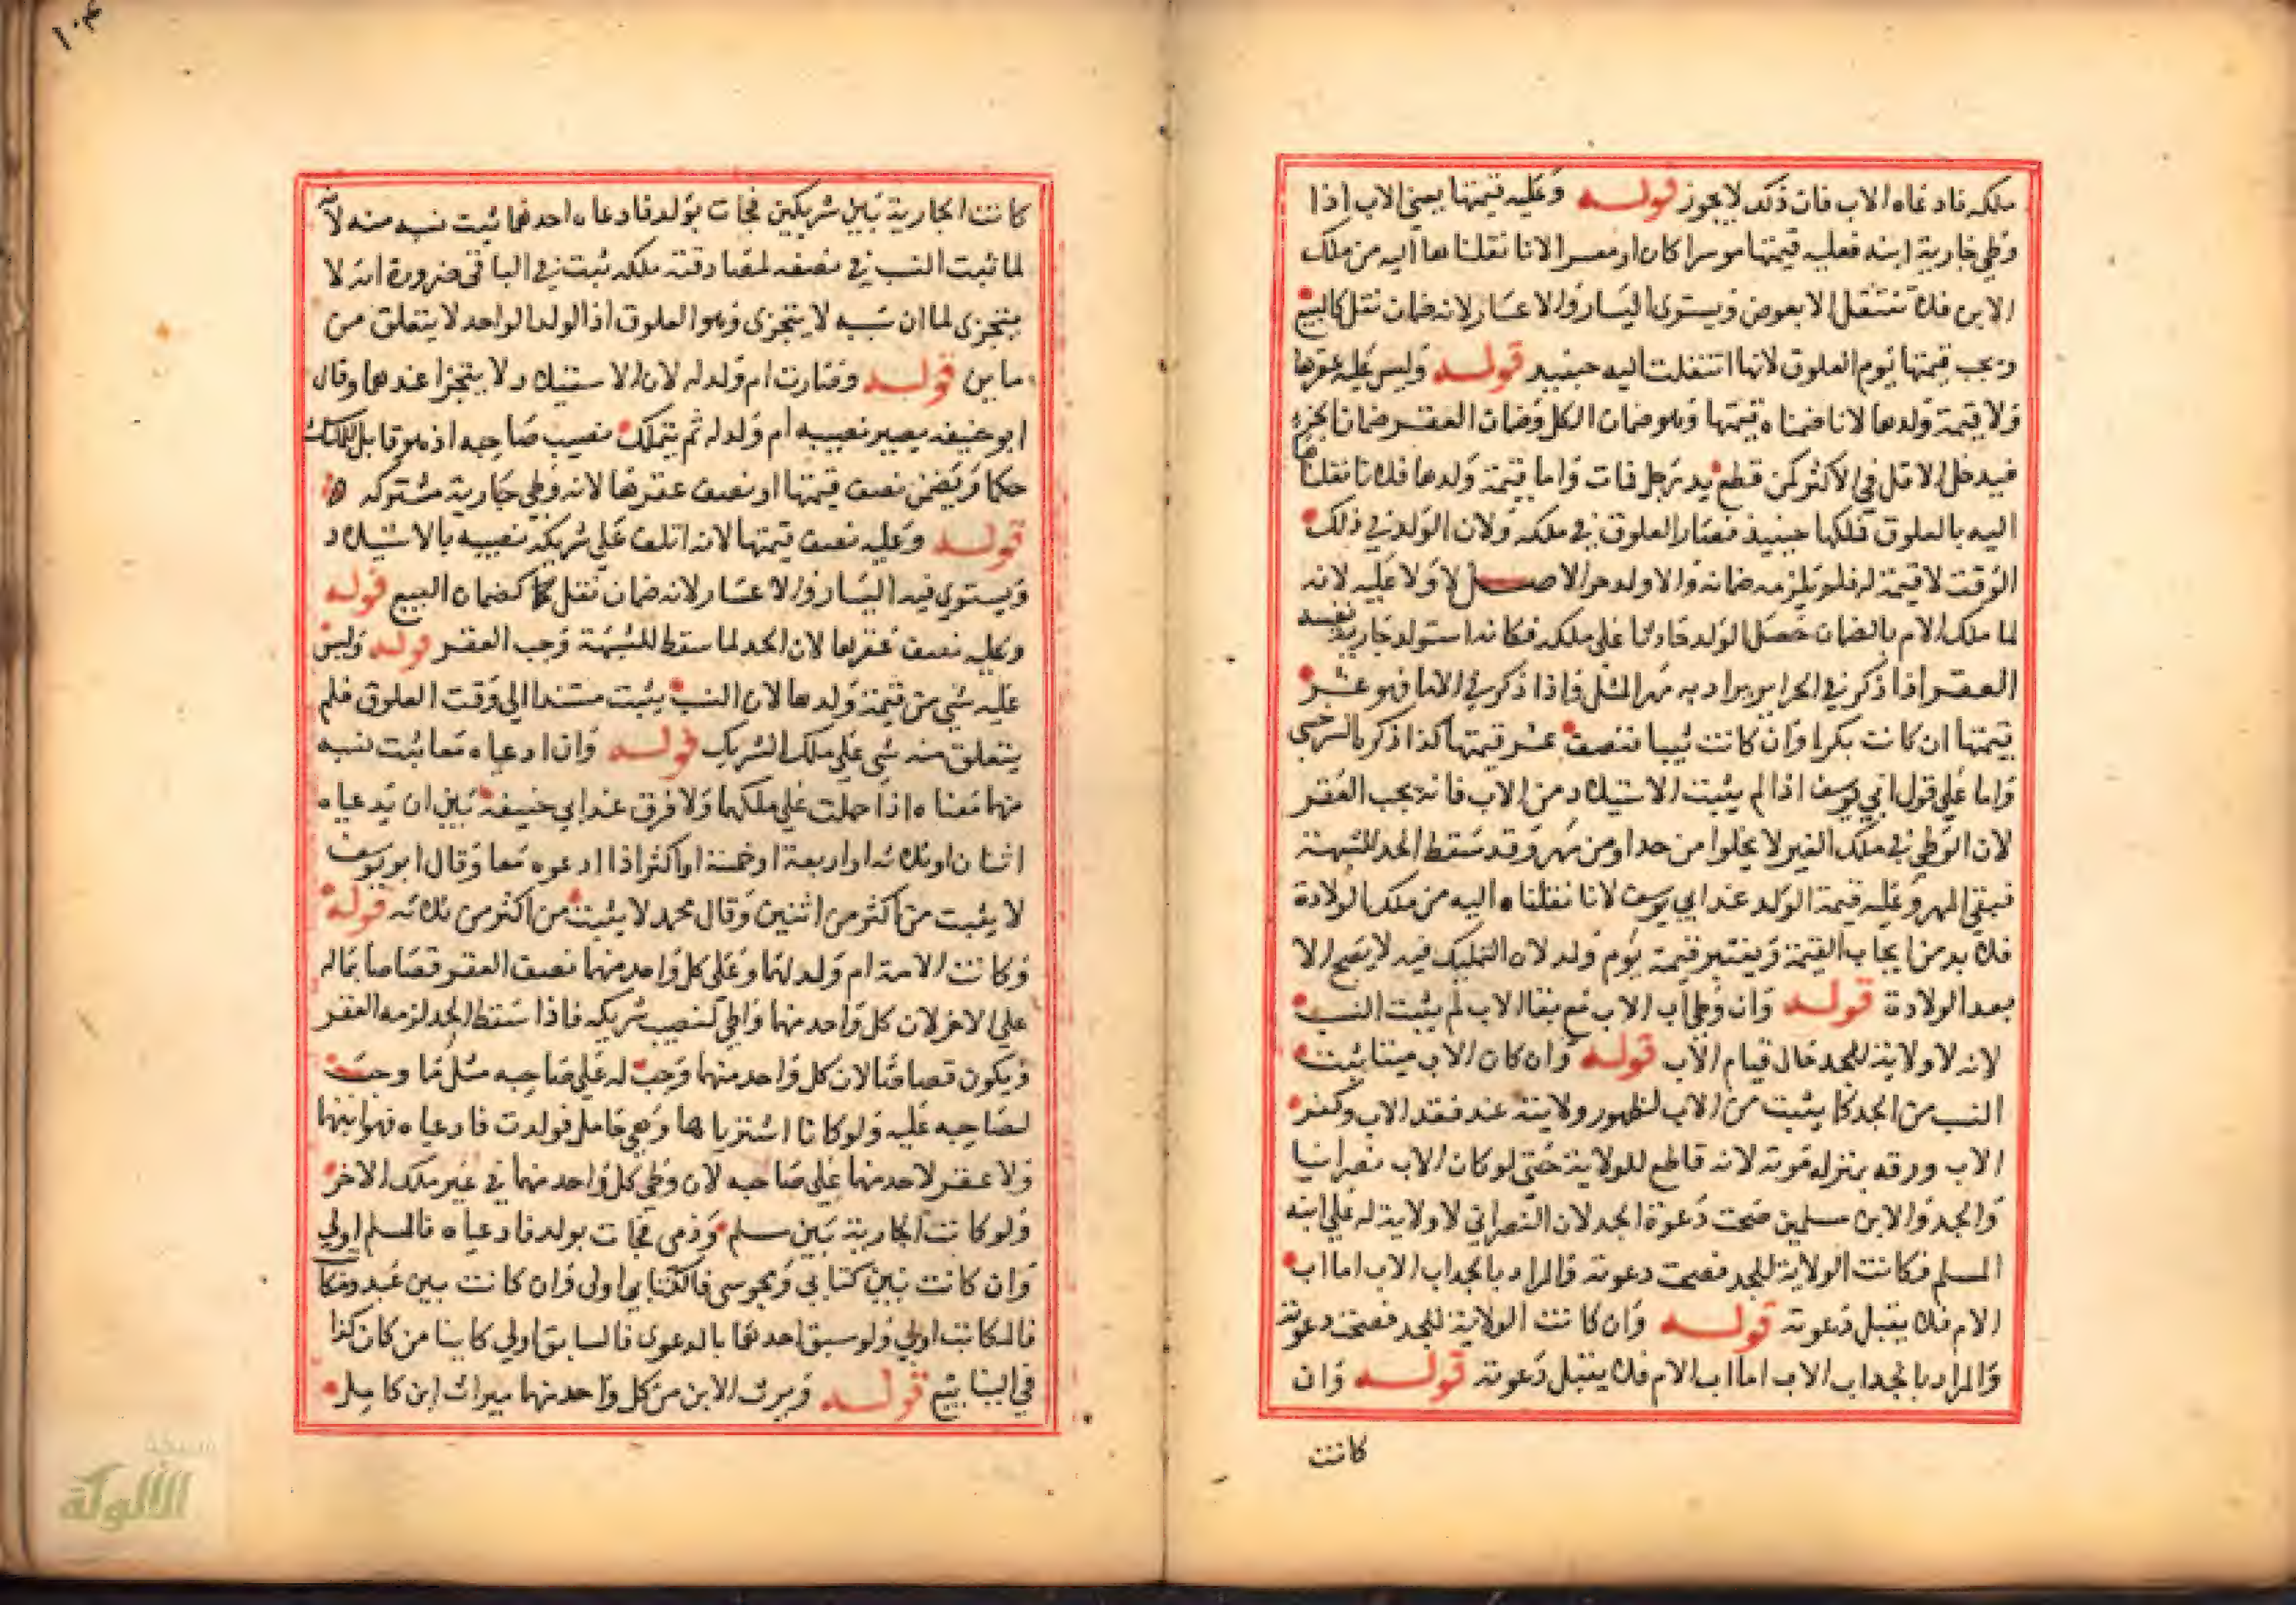 ملكه فادعاه الاب فان ذلك لا يجوز قوله وعليه قيمتها يعني الاب اذا
وطي جارية ابنه فعليه قيمتها موسرا كان او معسرا لانا نقلناها اليه من ملك
الابن فلا تنتقل الا بعوض ويستوي اليسار والاعسار لانه ضمان نقل كالبيع
ويجب قيمتها يوم العلوق لانها انتقلت اليه حينيد قوله وليس عليه عقرها
ولا قيمة ولدها لانا ضمناه قيمتها وهو ضمان الكل وضمان العقر ضمان الجزء
فيدخل الاقل في الاكثر كمن قطع يد رجل فمات واما قيمة ولدها فلانا نقلناها
اليه بالعلوق فملكها حينيذ فصار العلوق في ملكه ولان الولد في ذلك
الوقت لا قيمة له فلم يلزمه ضمانه والاولد حر الاصل لا ولاء عليه لانه
لما ملك الام بالضمان حصل الولد حادثا على ملكه فكانه استولد جارية نفسه
العقر اذا ذكر في الحراير يراد به مهر المثل واذا ذكر في الاما فهو عشر
قيمتها ان كانت بكرا وان كانت ثيبا فنصف عشر قيمتها كذا ذكره السرخسي
واما على قول ابي يوسف اذا لم يثبت الاستيلاد من الاب فانه يجب العقر
لان الوطي في ملك الغير لا يخلوا من حد او من مهر وقد سقط الحد للشبهة
فبقي المهر وعليه قيمة الولد عند ابي يوسف لانا نقلناه اليه من ملك الولادة
فلا بد من ايجاب القيمة ويعتبر قيمته يوم ولد لان التمليك فيه لا يصح الا
بعد الولادة قوله وان وطي اب الاب مع بقا الاب لم يثبت النسب
لانه لا ولاية للجد حال قيام الاب قوله وان كان الاب ميتا يثبت
النسب من الجد كما يثبت من الاب لظهور ولايته عند فقد الاب وكفر
الاب ورقه بمنزله موته لانه قاطع للولاية حتى لو كان الاب نصرانيا
والجد والابن مسلمين صحت دعوة الجد لان النصراني لا ولاية له على ابنه
المسلم فكانت الولاية للجد فصحت دعوته والمراد بالجد اب الاب اما اب
الام فلا يقبل دعوته قوله وان كانت الولاية للجد فصحت دعوته
والمراد بالجد اب الاب اما اب الام فلا يقبل دعوته قوله وان
كانت
١٠٤
كانت الجارية بين شريكين فجات بولد فادعاه احدهما يثبت نسبه منه لانه
لما ثبت النسب في نصفه لمصادفته ملكه ثبت في الباقي ضرورة انه لا
يتجزى لما ان سببه لا يتجزى وهو العلوق اذ الولد الواحد لا يتعلق من
ماين قوله وصارت ام ولد له لان الاستيلاد لا يتجزا عندهما وقال
ابو حنيفه يصير نصيبه ام ولد له ثم يتملك نصيب صاحبه اذ هو قابل للملك
حكما ويضمن نصف قيمتها او نصف عقرها لانه وطي جارية مشتركه
قوله وعليه نصف قيمتها لانه اتلف على شريكه نصيبه بالاستيلاد
ويستوي فيه اليسار والاعسار لانه ضمان نقل كضمان البيع قوله
وعليه نصف عقرها لان الحد لما سقط للشبهة وجب العقر قوله وليس
عليه شي من قيمة ولدها لان النسب يثبت مستندا الي وقت العلوق فلم
يتعلق منه شي على ملك الشريك قوله وان ادعياه معا ثبت نسبه
منهما معناه اذا حملت على ملكهما ولا فرق عند ابي حنيفة بين ان يدعياه
اثنان او ثلاثه او اربعة او خمسة او اكثر اذا ادعوه معا وقال ابو يوسف
لا يثبت من اكثر من اثنين وقال محمد لا يثبت من اكثر من ثلاثه قوله
وكانت الامة ام ولد لهما وعلى كل واحد منهما نصف العقر قصاصا بماله
على الاخر لان كل واحد منهما واطي لنصيب شريكه فاذا سقط الحد لزمه العقر
ويكون قصاصا لان كل واحد منهما وجب له على صاحبه مثل ما وجب
لصاحبه عليه ولو كانا اشترياها وهي حامل فولدت فادعياه فهو ابنهما
ولا عقر لاحد منهما على صاحبه لان وطي كل واحد منهما في غير ملك الاخر
ولو كانت الجارية بين مسلم وذمى فجات بولد فادعياه فالمسلم اولي
وان كانت بين كتابي ومجوسي فالكتابي اولى وان كانت بين عبد ومكا
فالمكاتب اولي ولو سبق احدهما بالدعوى فالسابق اولي كاينا من كان كذا
في الينابيع قوله ويرث الابن من كل واحد منهما ميراث ابن كامل
شبكة
الألوكة